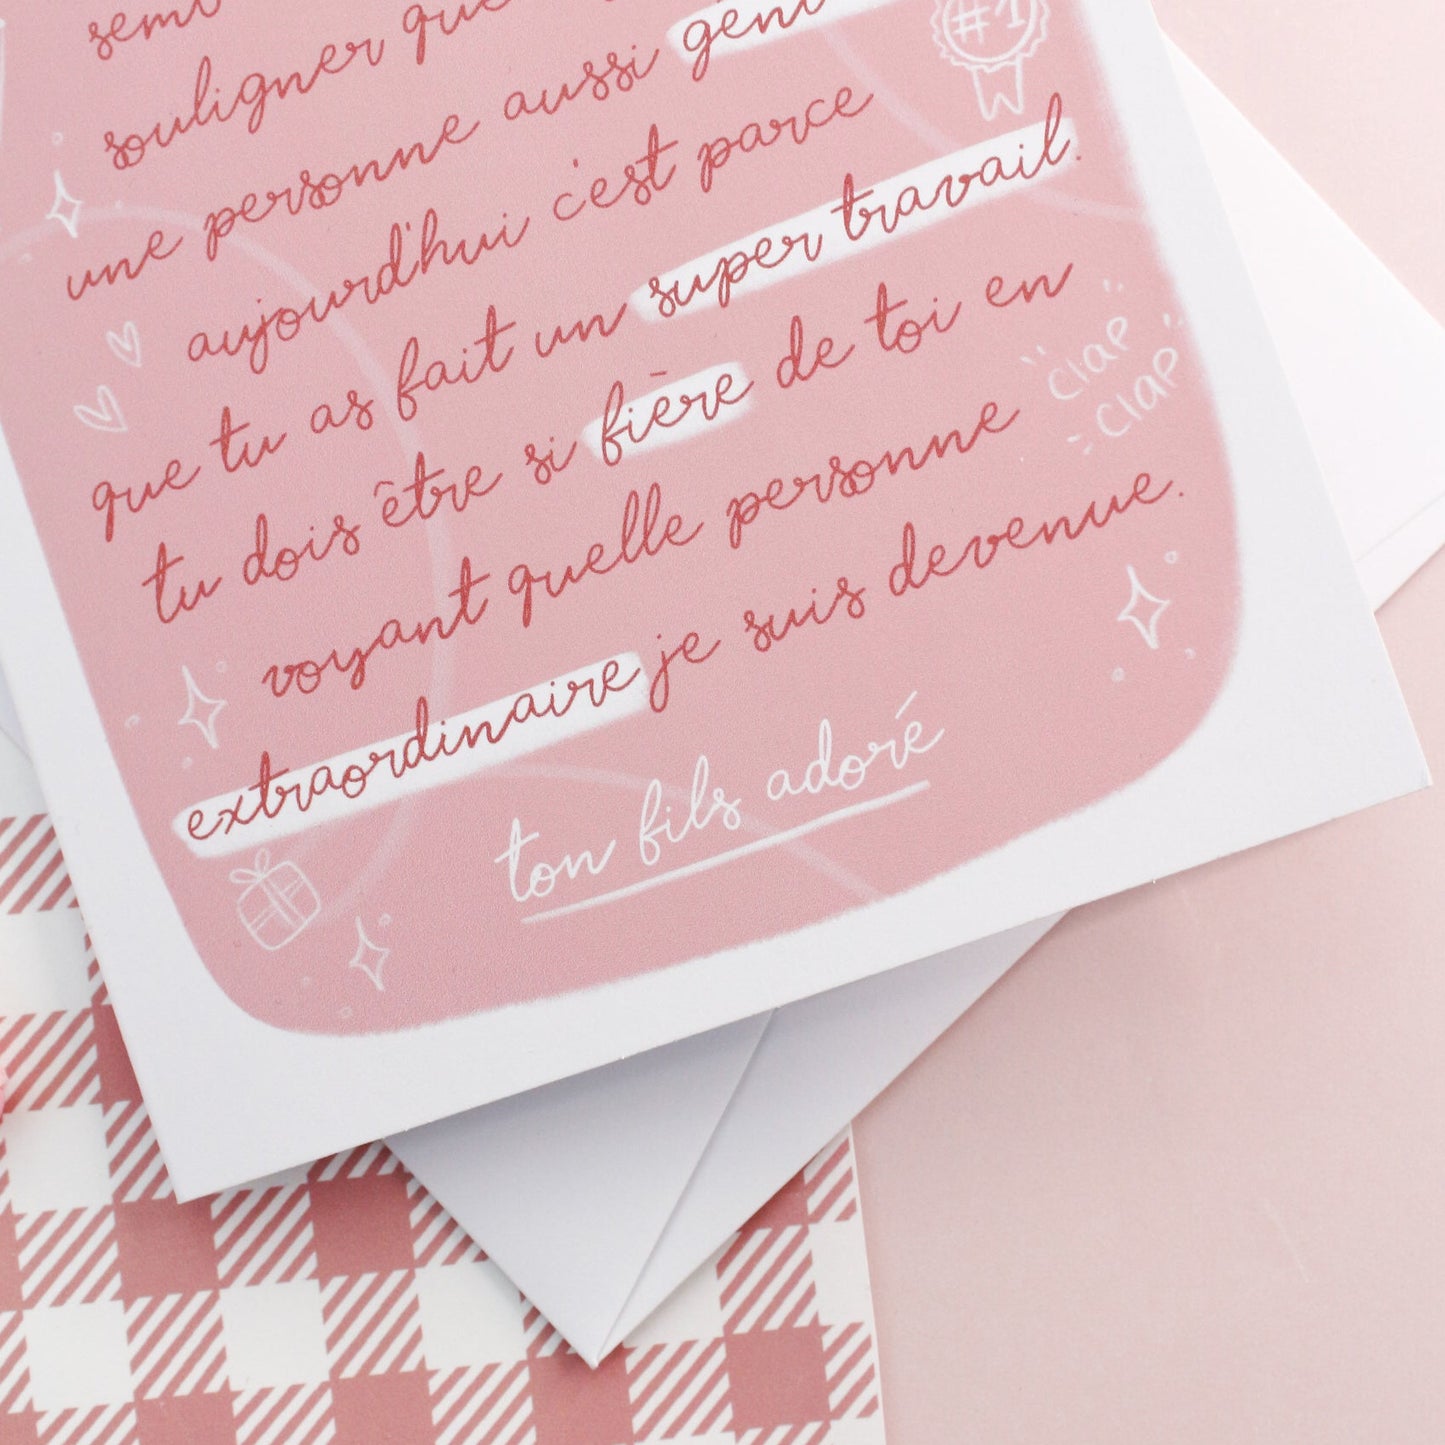 souligner que
une personne aussi
#1
aujourd'hui c'est parce
que tu as fait un super travail.
tu dois être si fière de toi en
clap
clap
voyant quelle personne
extraordinaire je suis devenue.
ton fils adoré